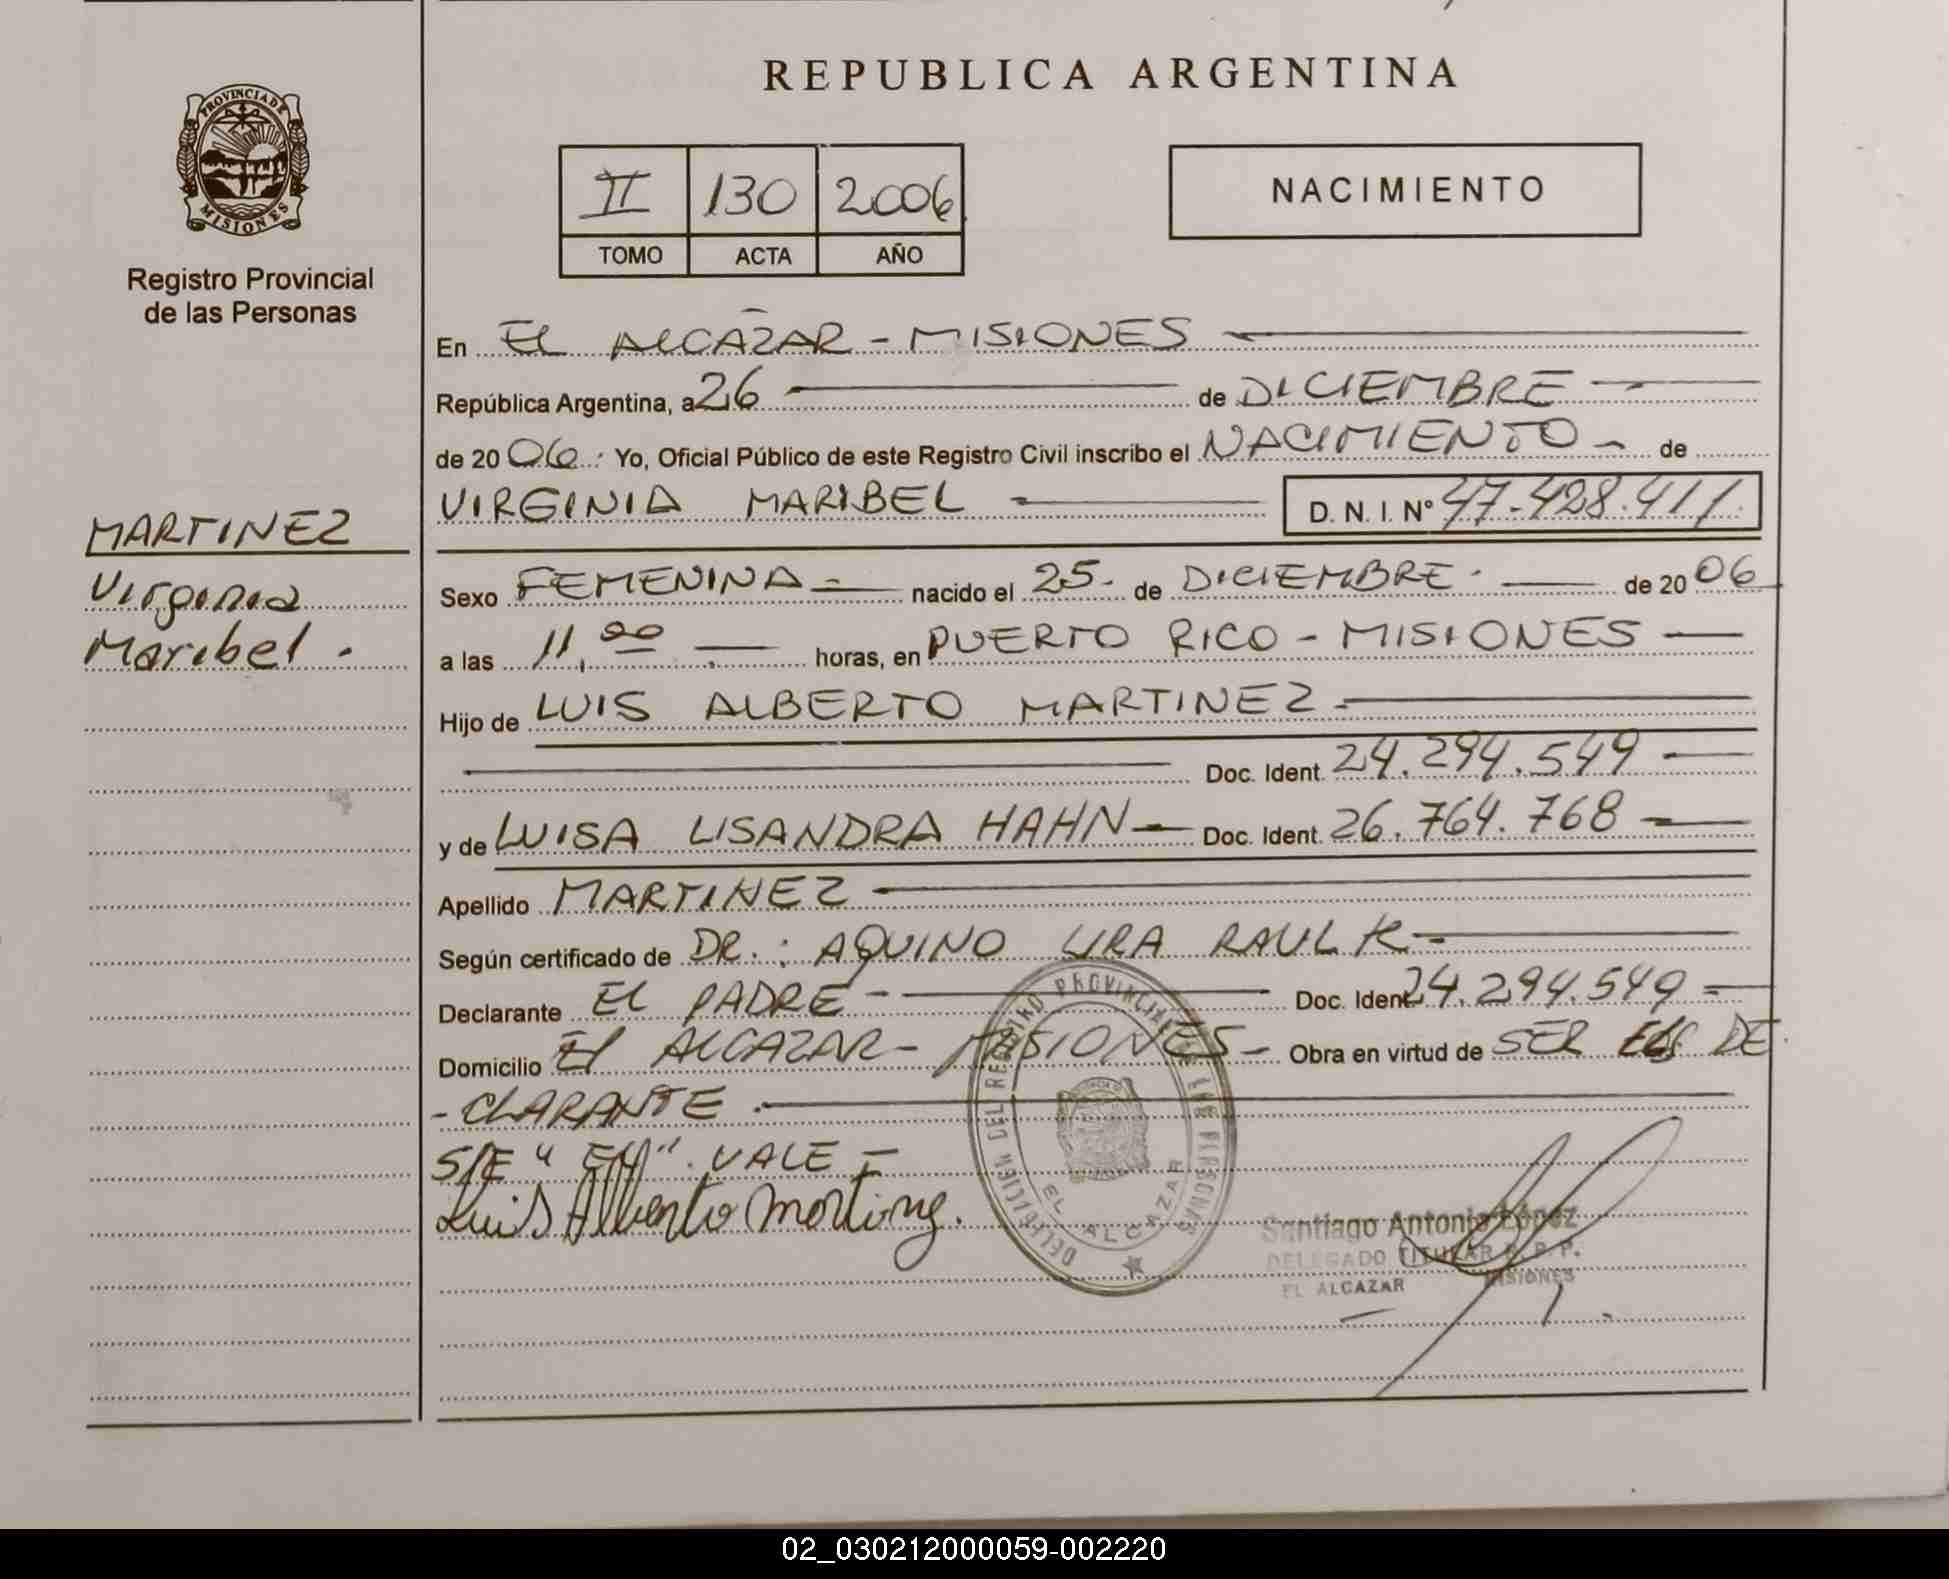 REPUBLICA ARGENTINA
PROVINCIA DE
MISIONES
Registro Provincial
de las Personas
II 130 2006
TOMO ACTA AÑO
NACIMIENTO
En EL ALCAZAR - MISIONES
República Argentina, a 26 de DICIEMBRE
de 20 06. Yo, Oficial Público de este Registro Civil inscribo el NACIMIENTO de
VIRGINIA MARIBEL D. N. I. N° 47.428.411
MARTINEZ
Virginia
Maribel.
Sexo FEMENINA nacido el 25 de DICIEMBRE de 20 06
a las 11,00 horas, en PUERTO RICO - MISIONES
Hijo de LUIS ALBERTO MARTINEZ
Doc. Ident. 24.294.549
y de LUISA LISANDRA HAHN Doc. Ident. 26.764.768
Apellido MARTINEZ
Según certificado de DR.: AQUINO LIRA RAUL R
Declarante EL PADRE Doc. Ident. 24.294.549
Domicilio El ALCAZAR - MISIONES Obra en virtud de SER DE
-CLARANTE.
S/E " " VALE
Luis Alberto Martinez.
DEL REGISTRO PROVINCIAL DE LAS PERSONAS
EL ALCAZAR
Santiago Antonio López
DELEGADO TITULAR R. P. P.
EL ALCAZAR MISIONES
02_030212000059-002220